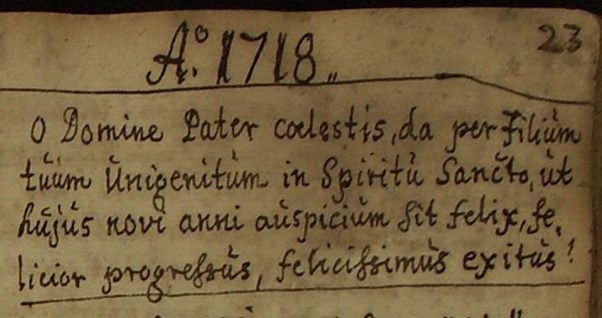 Aº. 1718.,,
23
O Domine Pater cœlestis, da per filium
tuum Unigenitum in Spiritu Sancto, ut
hujus novi anni auspicium sit felix, fe,
licior progressus, felicissimus exitus!